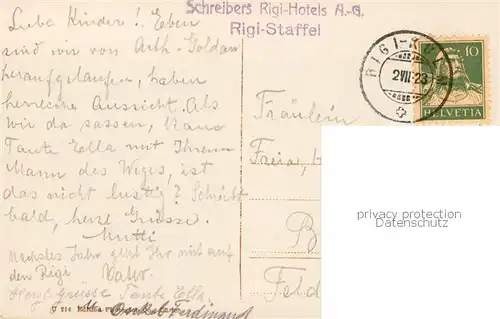 Schreibers Rigi-Hotels A.-G.
Rigi-Staffel
Liebe Kinder! Eben
sind wir von Arth-Goldau
heraufgelaufen, haben
herrliche Aussicht. Als
wir da sassen, kam
Tante Ella mit Ihrem
Mann des Wegs, ist
das nicht lustig? Schreibt
bald, herzl Grüsse.
Mutti
Nächstes Jahr geht Ihr mit auf
den Rigi Vater
Herzl. Grüsse Tante Ella
Onkel Ferdinand
RIGI-KULM
2 VII 23
10
HELVETIA
Fräulein
Freia
B
Feld
privacy protection
Datenschutz